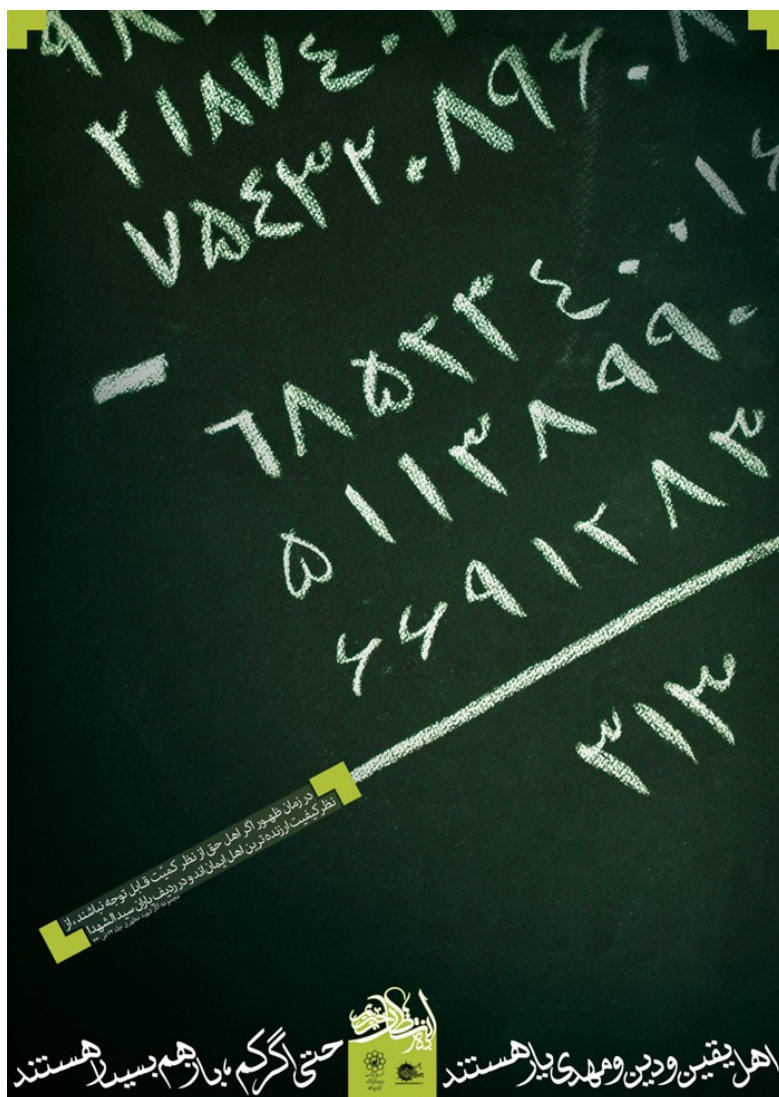 ۹۸
۲۱۸۷٤۰۱
۷۵٤۳۲۰۸۹۶۰۸
-
۶۸۵۲۳٤۰۰۱۶
۵۱۱۳۸۹۹۰
۶۶۹۱۲۸۳
۳۱۳
در زمان ظهور اگر اهل حق از نظر کمیّت قابل توجه نباشند، از
نظر کیفیت ارزنده ترین اهل ایمان اند و در ردیف یاران سیدالشهدا
مجموعه آثار شهید مطهری جلد
اهل یقین و دین و مهدی یار هستند
حتی اگر کم، باز هم بسیار هستند